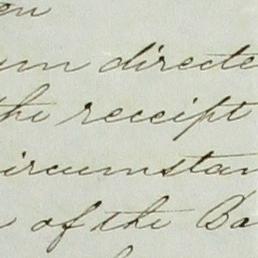 en
um directe
the receipt
ircumstan
of the Ba